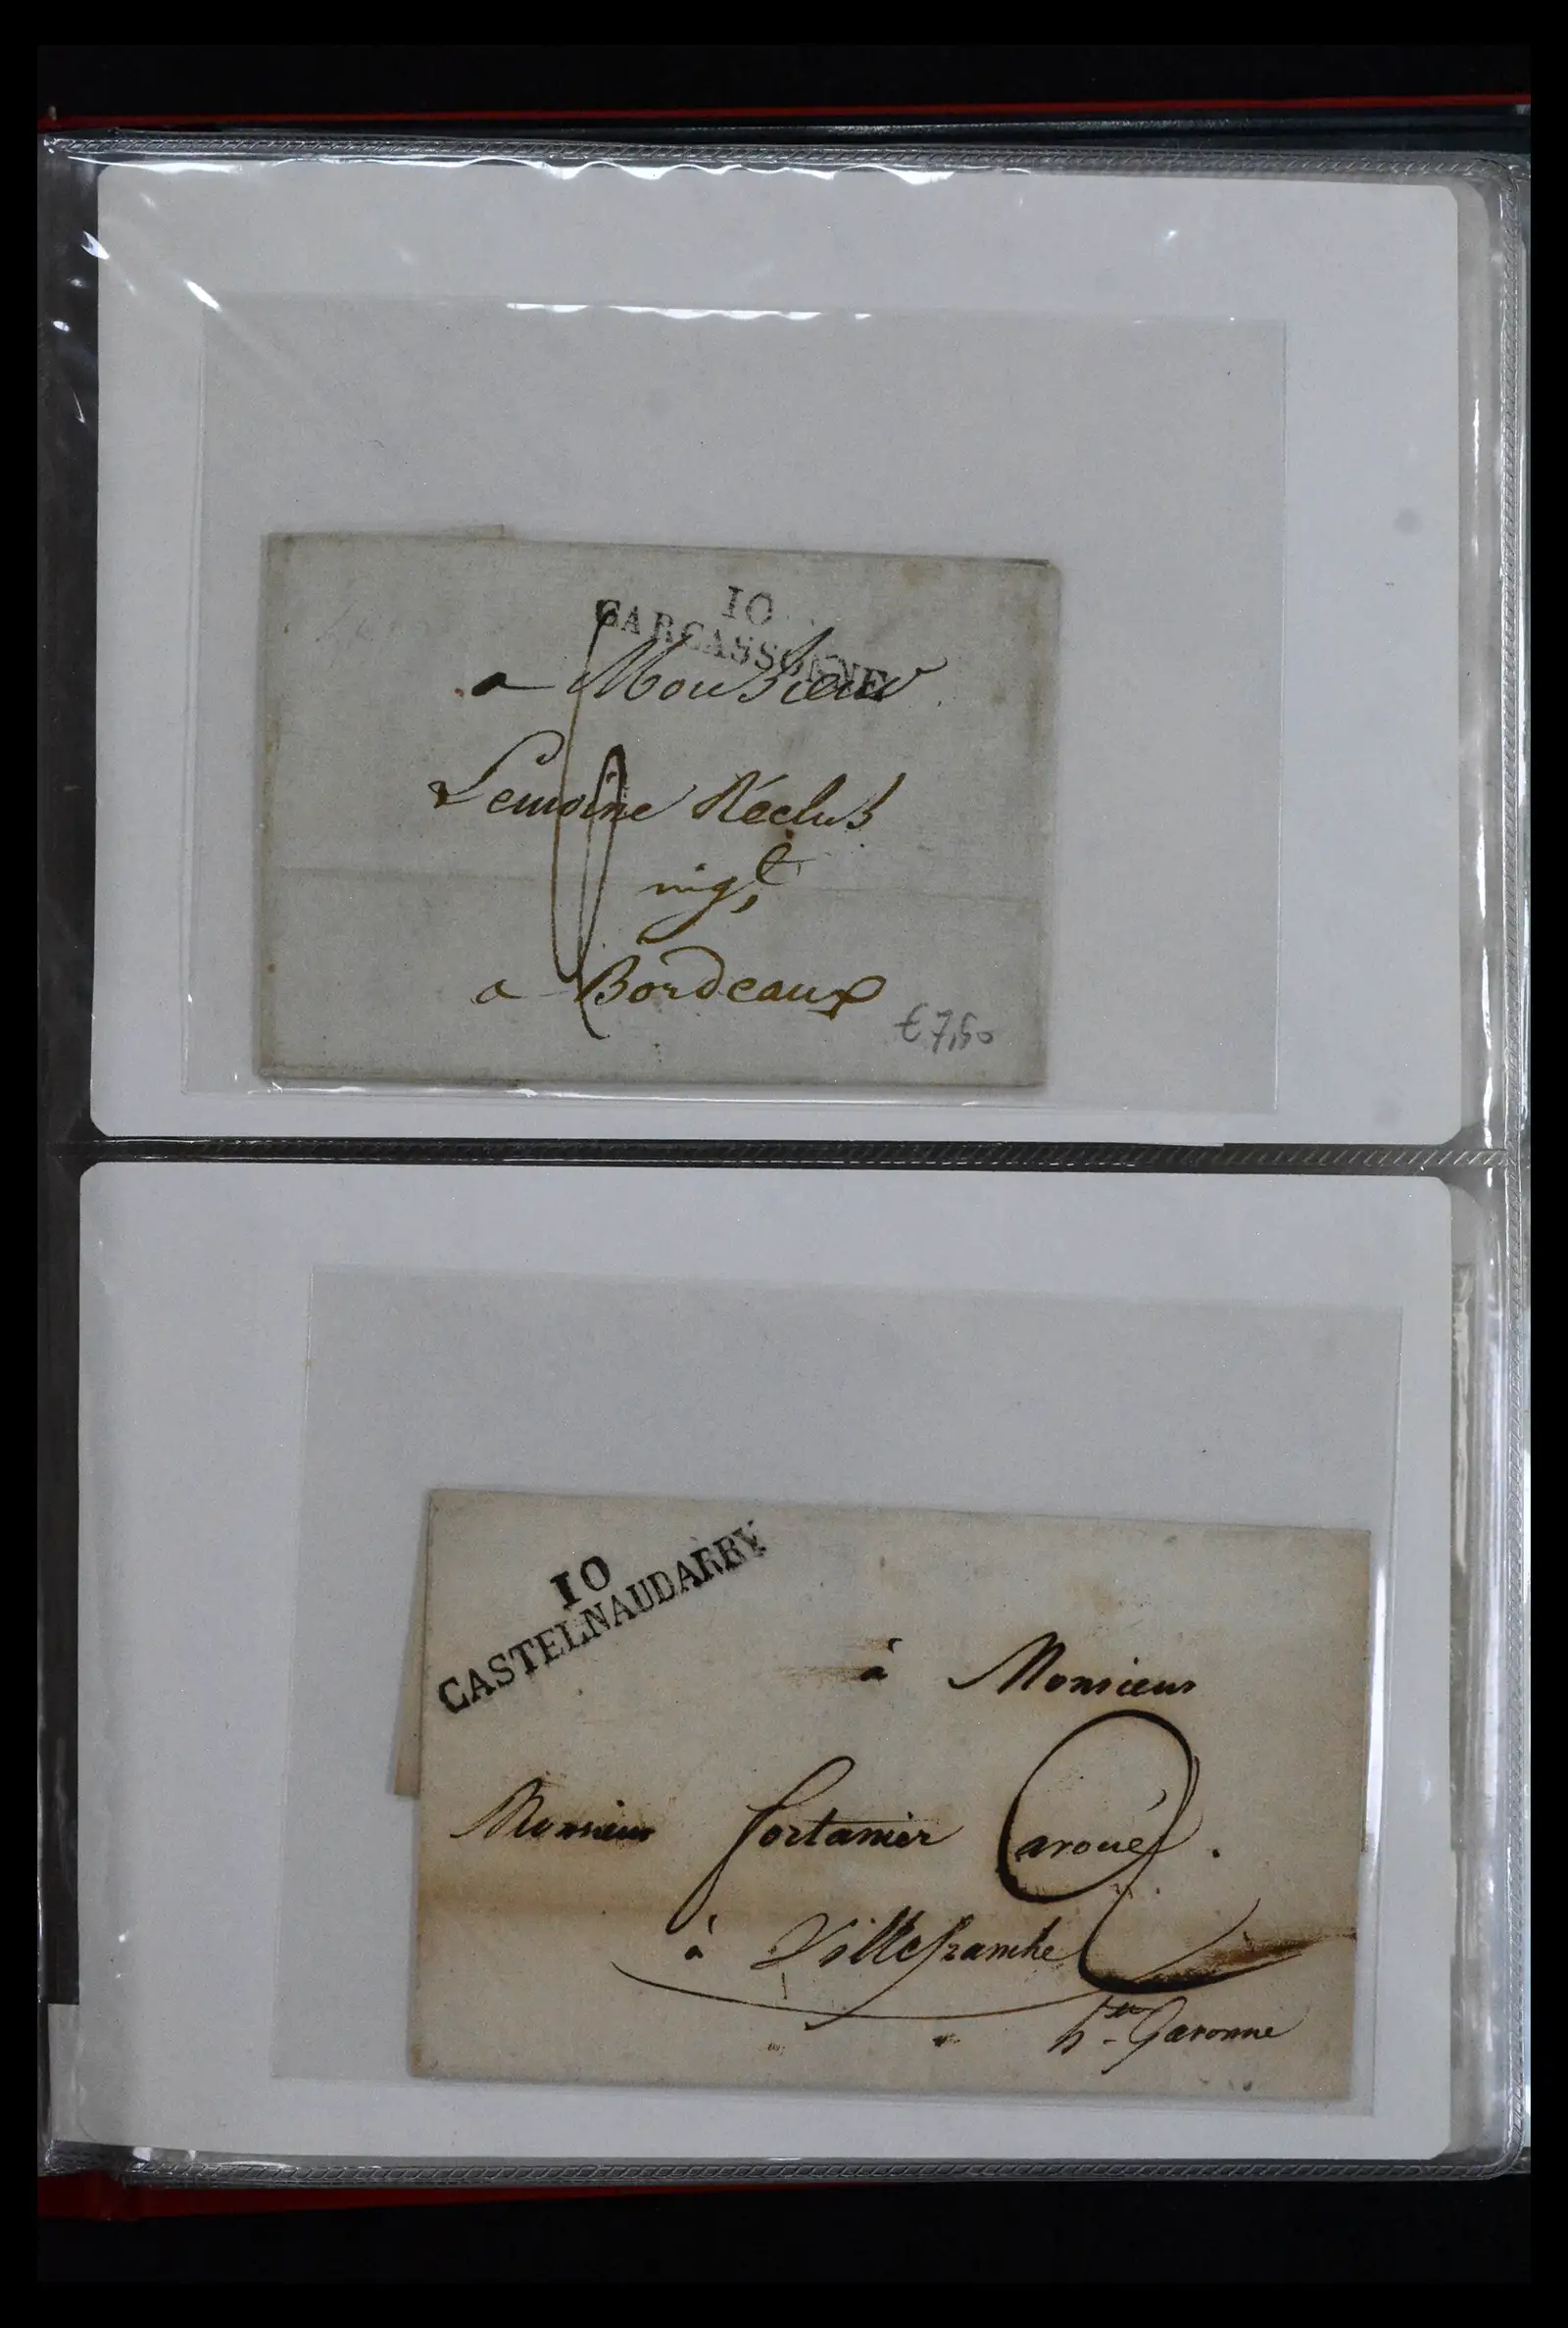 10
CARCASSONNE
a Monsieur
Lemoine Réclus
nigt
a Bordeaux
€ 7,50
10
CASTELNAUDARRY
à Monsieur
Monsieur fortanier avoué
2
à Villefranche
hte Garonne